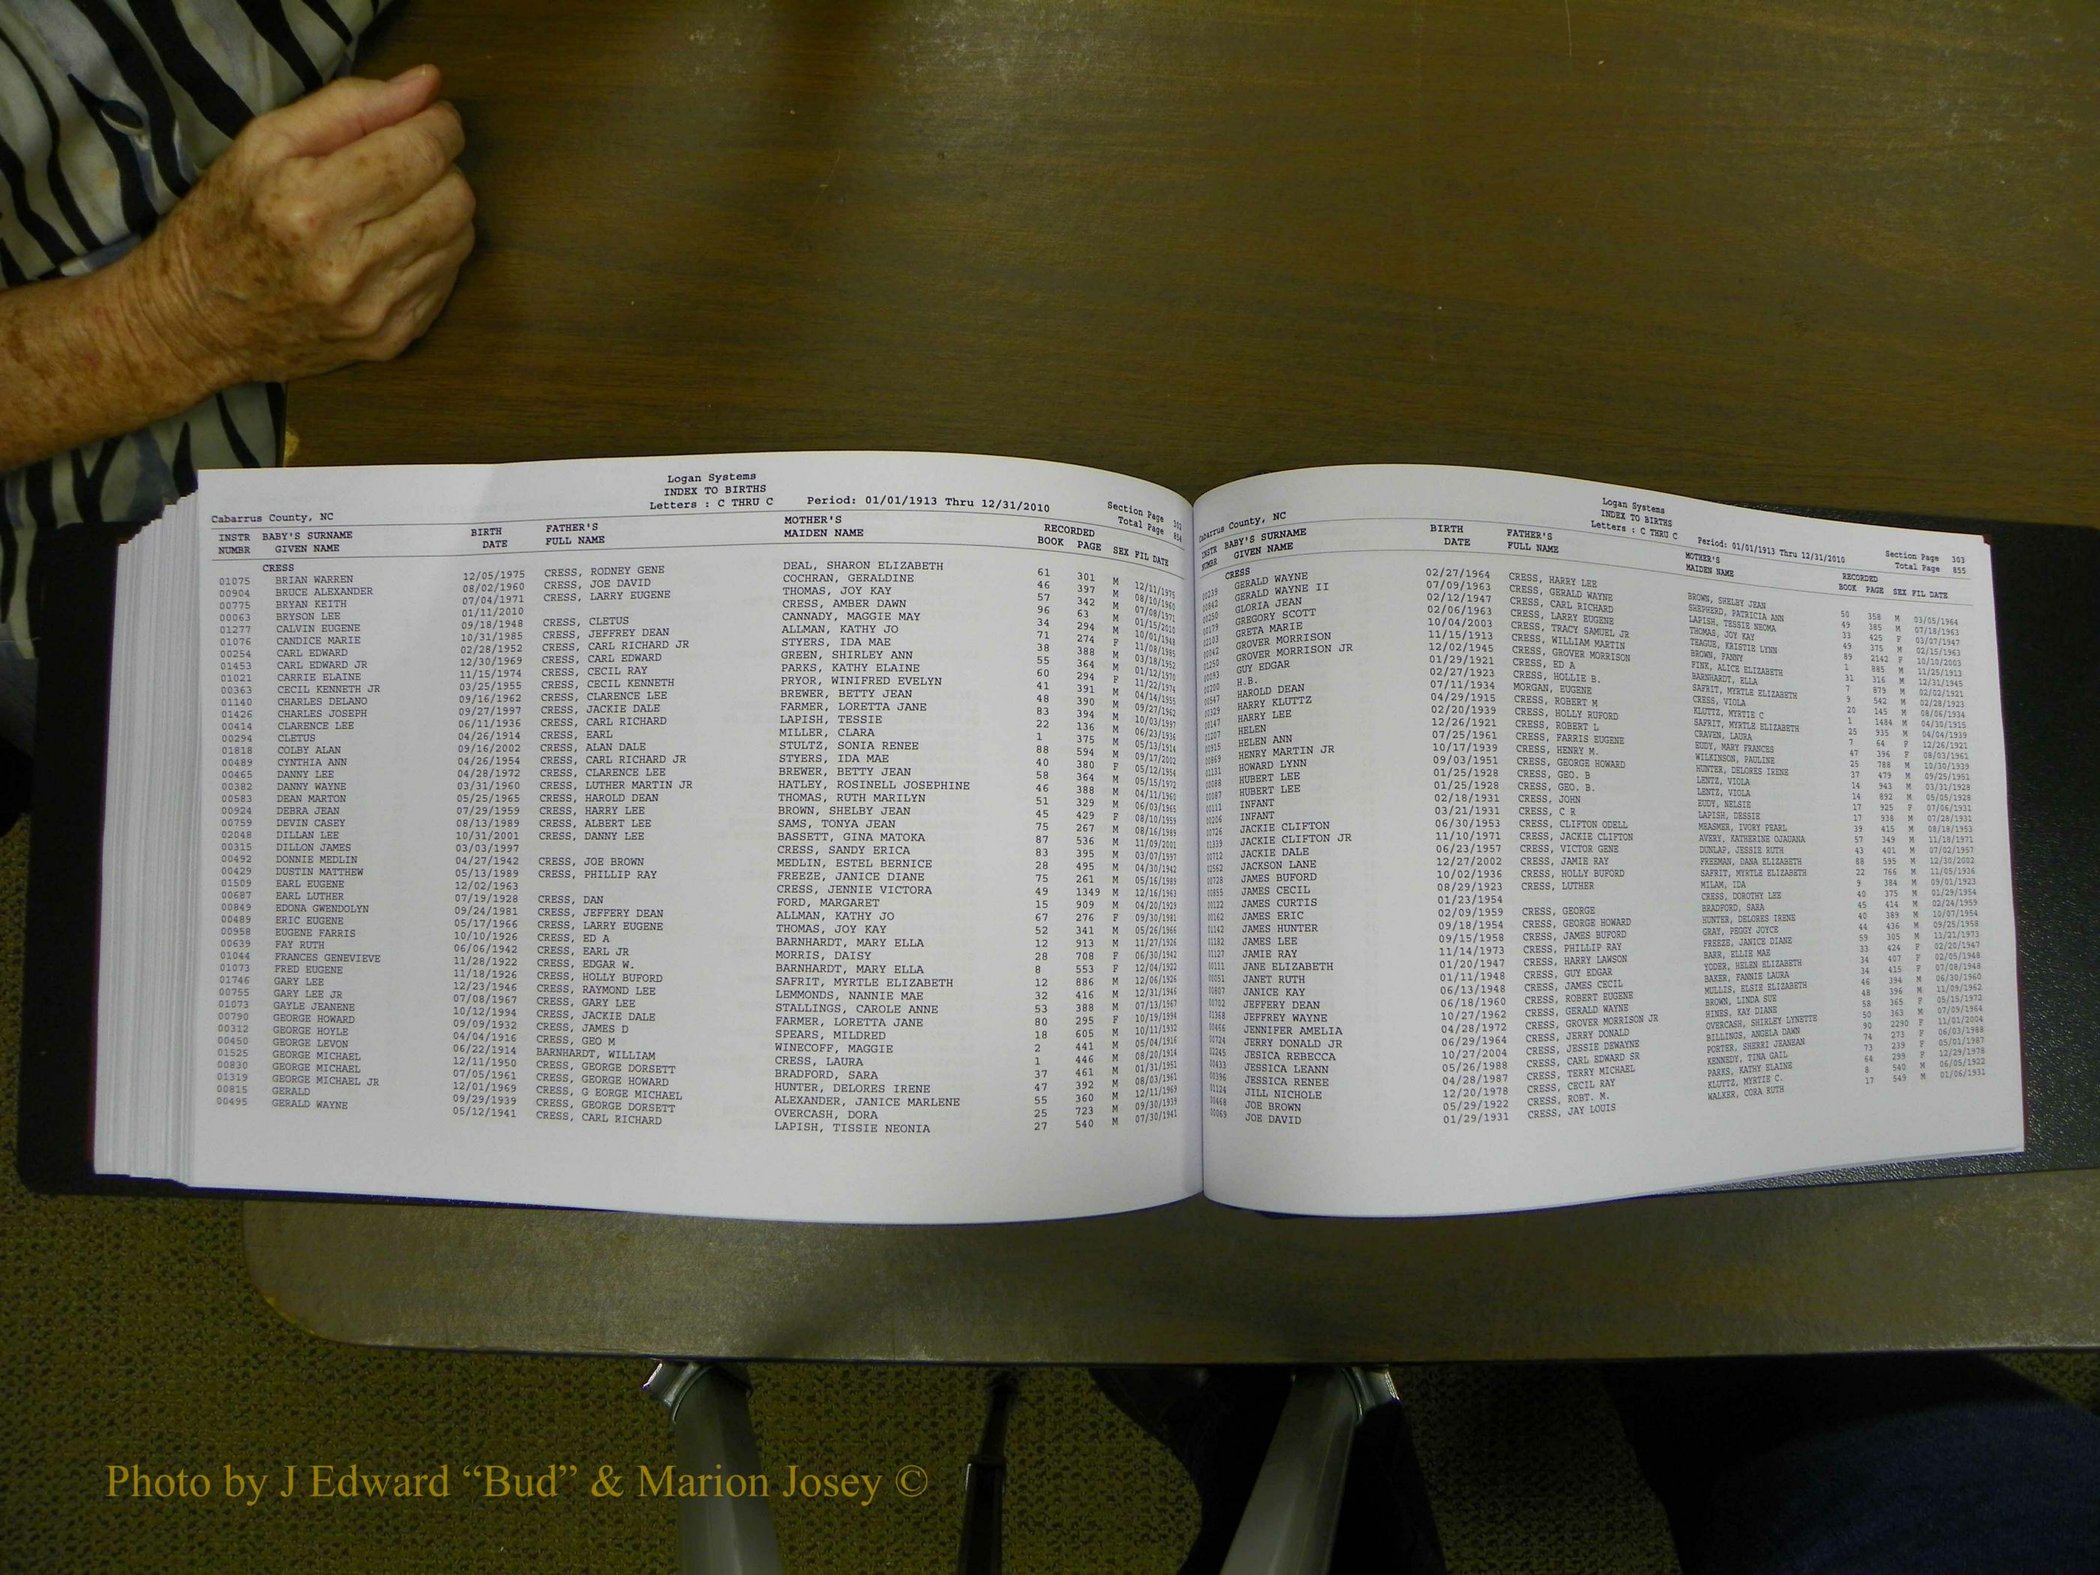 Logan Systems
INDEX TO BIRTHS
Letters : C THRU C Period: 01/01/1913 Thru 12/31/2010
Cabarrus County, NC Section Page 302
Total Page 854
INSTR BABY'S SURNAME BIRTH FATHER'S MOTHER'S RECORDED
NUMBR GIVEN NAME DATE FULL NAME MAIDEN NAME BOOK PAGE SEX FIL DATE
CRESS
01075 BRIAN WARREN 12/05/1975 CRESS, RODNEY GENE DEAL, SHARON ELIZABETH 61 301 M 12/11/1975
00904 BRUCE ALEXANDER 08/02/1960 CRESS, JOE DAVID COCHRAN, GERALDINE 46 397 M 08/10/1960
00775 BRYAN KEITH 07/04/1971 CRESS, LARRY EUGENE THOMAS, JOY KAY 57 342 M 07/08/1971
00063 BRYSON LEE 01/11/2010 CRESS, AMBER DAWN 96 63 M 01/15/2010
01277 CALVIN EUGENE 09/18/1948 CRESS, CLETUS CANNADY, MAGGIE MAY 34 294 M 10/01/1948
01076 CANDICE MARIE 10/31/1985 CRESS, JEFFREY DEAN ALLMAN, KATHY JO 71 274 F 11/08/1985
00254 CARL EDWARD 02/28/1952 CRESS, CARL RICHARD JR STYERS, IDA MAE 38 388 M 03/18/1952
01453 CARL EDWARD JR 12/30/1969 CRESS, CARL EDWARD GREEN, SHIRLEY ANN 55 364 M 01/12/1970
01021 CARRIE ELAINE 11/15/1974 CRESS, CECIL RAY PARKS, KATHY ELAINE 60 294 F 11/22/1974
00363 CECIL KENNETH JR 03/25/1955 CRESS, CECIL KENNETH PRYOR, WINIFRED EVELYN 41 391 M 04/14/1955
01140 CHARLES DELANO 09/16/1962 CRESS, CLARENCE LEE BREWER, BETTY JEAN 48 390 M 09/27/1962
01426 CHARLES JOSEPH 09/27/1997 CRESS, JACKIE DALE FARMER, LORETTA JANE 83 394 M 10/03/1997
00414 CLARENCE LEE 06/11/1936 CRESS, CARL RICHARD LAPISH, TESSIE 22 136 M 06/23/1936
00294 CLETUS 04/26/1914 CRESS, EARL MILLER, CLARA 1 375 M 05/13/1914
01818 COLBY ALAN 09/16/2002 CRESS, ALAN DALE STULTZ, SONIA RENEE 88 594 M 09/17/2002
00489 CYNTHIA ANN 04/26/1954 CRESS, CARL RICHARD JR STYERS, IDA MAE 40 380 F 05/12/1954
00465 DANNY LEE 04/28/1972 CRESS, CLARENCE LEE BREWER, BETTY JEAN 58 364 M 05/15/1972
00382 DANNY WAYNE 03/31/1960 CRESS, LUTHER MARTIN JR HATLEY, ROSINELL JOSEPHINE 46 388 M 04/11/1960
00583 DEAN MARTON 05/25/1965 CRESS, HAROLD DEAN THOMAS, RUTH MARILYN 51 329 M 06/03/1965
00924 DEBRA JEAN 07/29/1959 CRESS, HARRY LEE BROWN, SHELBY JEAN 45 429 F 08/10/1959
00759 DEVIN CASEY 08/13/1989 CRESS, ALBERT LEE SAMS, TONYA JEAN 75 267 M 08/16/1989
02048 DILLAN LEE 10/31/2001 CRESS, DANNY LEE BASSETT, GINA MATOKA 87 536 M 11/09/2001
00315 DILLON JAMES 03/03/1997 CRESS, SANDY ERICA 83 395 M 03/07/1997
00492 DONNIE MEDLIN 04/27/1942 CRESS, JOE BROWN MEDLIN, ESTEL BERNICE 28 495 M 04/30/1942
00429 DUSTIN MATTHEW 05/13/1989 CRESS, PHILLIP RAY FREEZE, JANICE DIANE 75 261 M 05/16/1989
01509 EARL EUGENE 12/02/1963 CRESS, JENNIE VICTORA 49 1349 M 12/16/1963
00687 EARL LUTHER 07/19/1928 CRESS, DAN FORD, MARGARET 15 909 M 04/20/1929
00849 EDONA GWENDOLYN 09/24/1981 CRESS, JEFFERY DEAN ALLMAN, KATHY JO 67 276 F 09/30/1981
00489 ERIC EUGENE 05/17/1966 CRESS, LARRY EUGENE THOMAS, JOY KAY 52 341 M 05/26/1966
00958 EUGENE FARRIS 10/10/1926 CRESS, ED A BARNHARDT, MARY ELLA 12 913 M 11/27/1926
00639 FAY RUTH 06/06/1942 CRESS, EARL JR MORRIS, DAISY 28 708 F 06/30/1942
01044 FRANCES GENEVIEVE 11/28/1922 CRESS, EDGAR W. BARNHARDT, MARY ELLA 8 553 F 12/04/1922
01073 FRED EUGENE 11/18/1926 CRESS, HOLLY BUFORD SAFRIT, MYRTLE ELIZABETH 12 886 M 12/06/1926
01746 GARY LEE 12/23/1946 CRESS, RAYMOND LEE LEMMONDS, NANNIE MAE 32 416 M 12/31/1946
00755 GARY LEE JR 07/08/1967 CRESS, GARY LEE STALLINGS, CAROLE ANNE 53 388 M 07/13/1967
01073 GAYLE JEANENE 10/12/1994 CRESS, JACKIE DALE FARMER, LORETTA JANE 80 295 F 10/19/1994
00790 GEORGE HOWARD 09/09/1932 CRESS, JAMES D SPEARS, MILDRED 18 605 M 10/11/1932
00312 GEORGE HOYLE 04/04/1916 CRESS, GEO M WINECOFF, MAGGIE 2 441 M 05/04/1916
00450 GEORGE LEVON 06/22/1914 BARNHARDT, WILLIAM CRESS, LAURA 1 446 M 08/20/1914
01525 GEORGE MICHAEL 12/11/1950 CRESS, GEORGE DORSETT BRADFORD, SARA 37 461 M 01/31/1951
00830 GEORGE MICHAEL 07/05/1961 CRESS, GEORGE HOWARD HUNTER, DELORES IRENE 47 392 M 08/03/1961
01319 GEORGE MICHAEL JR 12/01/1969 CRESS, G EORGE MICHAEL ALEXANDER, JANICE MARLENE 55 360 M 12/11/1969
00815 GERALD 09/29/1939 CRESS, GEORGE DORSETT OVERCASH, DORA 25 723 M 09/30/1939
00495 GERALD WAYNE 05/12/1941 CRESS, CARL RICHARD LAPISH, TISSIE NEONIA 27 540 M 07/30/1941
Logan Systems
INDEX TO BIRTHS
Letters : C THRU C Period: 01/01/1913 Thru 12/31/2010
Cabarrus County, NC Section Page 303
Total Page 855
INSTR BABY'S SURNAME BIRTH FATHER'S MOTHER'S RECORDED
NUMBR GIVEN NAME DATE FULL NAME MAIDEN NAME BOOK PAGE SEX FIL DATE
CRESS
00239 GERALD WAYNE 02/27/1964 CRESS, HARRY LEE BROWN, SHELBY JEAN 50 358 M 03/05/1964
00842 GERALD WAYNE II 07/09/1963 CRESS, GERALD WAYNE SHEPHERD, PATRICIA ANN 49 385 M 07/18/1963
00250 GLORIA JEAN 02/12/1947 CRESS, CARL RICHARD LAPISH, TESSIE NEOMA 33 425 F 03/07/1947
00179 GREGORY SCOTT 02/06/1963 CRESS, LARRY EUGENE THOMAS, JOY KAY 49 375 M 02/15/1963
02103 GRETA MARIE 10/04/2003 CRESS, TRACY SAMUEL JR TEAGUE, KRISTIE LYNN 89 2142 F 10/10/2003
00042 GROVER MORRISON 11/15/1913 CRESS, WILLIAM MARTIN BROWN, FANNY 1 885 M 11/25/1913
01250 GROVER MORRISON JR 12/02/1945 CRESS, GROVER MORRISON PINK, ALICE ELIZABETH 31 316 M 12/31/1945
00093 GUY EDGAR 01/29/1921 CRESS, ED A BARNHARDT, ELLA 7 879 M 02/02/1921
00200 H.B. 02/27/1923 CRESS, HOLLIE B. SAFRIT, MYRTLE ELIZABETH 9 542 M 02/28/1923
00547 HAROLD DEAN 07/11/1934 MORGAN, EUGENE CRESS, VIOLA 20 145 M 08/06/1934
00329 HARRY KLUTTZ 04/29/1915 CRESS, ROBERT M KLUTTZ, MYRTIE C 1 1484 M 04/30/1915
00147 HARRY LEE 02/20/1939 CRESS, HOLLY RUFORD SAFRIT, MYRTLE ELIZABETH 25 935 M 04/04/1939
01207 HELEN 12/26/1921 CRESS, ROBERT L CRAVEN, LAURA 7 64 F 12/26/1921
00915 HELEN ANN 07/25/1961 CRESS, FARRIS EUGENE EUDY, MARY FRANCES 47 396 F 08/03/1961
00869 HENRY MARTIN JR 10/17/1939 CRESS, HENRY M. WILKINSON, PAULINE 25 788 M 10/30/1939
01131 HOWARD LYNN 09/03/1951 CRESS, GEORGE HOWARD HUNTER, DELORES IRENE 37 479 M 09/25/1951
00088 HUBERT LEE 01/25/1928 CRESS, GEO. B LENTZ, VIOLA 14 943 M 03/31/1928
00087 HUBERT LEE 01/25/1928 CRESS, GEO. B. LENTZ, VIOLA 14 892 M 05/05/1928
00111 INFANT 02/18/1931 CRESS, JOHN EUDY, NELSIE 17 925 F 07/06/1931
00206 INFANT 03/21/1931 CRESS, C R LAPISH, DESSIE 17 938 M 07/28/1931
00726 JACKIE CLIFTON 06/30/1953 CRESS, CLIFTON ODELL MEASMER, IVORY PEARL 39 415 M 08/18/1953
01339 JACKIE CLIFTON JR 11/10/1971 CRESS, JACKIE CLIFTON AVERY, KATHERINE OJAUANA 57 349 M 11/18/1971
00712 JACKIE DALE 06/23/1957 CRESS, VICTOR GENE DUNLAP, JESSIE RUTH 43 401 M 07/02/1957
02562 JACKSON LANE 12/27/2002 CRESS, JAMIE RAY FREEMAN, DANA ELIZABETH 88 595 M 12/30/2002
00728 JAMES BUFORD 10/02/1936 CRESS, HOLLY BUFORD SAFRIT, MYRTLE ELIZABETH 22 766 M 11/05/1936
00855 JAMES CECIL 08/29/1923 CRESS, LUTHER MILAM, IDA 9 384 M 09/01/1923
00122 JAMES CURTIS 01/23/1954 CRESS, DOROTHY LEE 40 375 M 01/29/1954
00162 JAMES ERIC 02/09/1959 CRESS, GEORGE BRADFORD, SARA 45 414 M 02/24/1959
01142 JAMES HUNTER 09/18/1954 CRESS, GEORGE HOWARD HUNTER, DELORES IRENE 40 389 M 10/07/1954
01182 JAMES LEE 09/15/1958 CRESS, JAMES BUFORD GRAY, PEGGY JOYCE 44 436 M 09/25/1958
01127 JAMIE RAY 11/14/1973 CRESS, PHILLIP RAY FREEZE, JANICE DIANE 59 305 M 11/21/1973
00111 JANE ELIZABETH 01/20/1947 CRESS, HARRY LAWSON BARR, ELLIE MAE 33 424 F 02/20/1947
00051 JANET RUTH 01/11/1948 CRESS, GUY EDGAR YODER, HELEN ELIZABETH 34 407 F 02/05/1948
00807 JANICE KAY 06/13/1948 CRESS, JAMES CECIL BAKER, FANNIE LAURA 34 415 F 07/08/1948
00702 JEFFERY DEAN 06/18/1960 CRESS, ROBERT EUGENE MULLIS, ELSIE ELIZABETH 46 394 M 06/30/1960
01368 JEFFREY WAYNE 10/27/1962 CRESS, GERALD WAYNE BROWN, LINDA SUE 48 396 M 11/09/1962
00466 JENNIFER AMELIA 04/28/1972 CRESS, GROVER MORRISON JR HINES, KAY DIANE 58 365 F 05/15/1972
00724 JERRY DONALD JR 06/29/1964 CRESS, JERRY DONALD OVERCASH, SHIRLEY LYNETTE 50 363 M 07/09/1964
02245 JESICA REBECCA 10/27/2004 CRESS, JESSIE DEWAYNE BILLINGS, ANGELA DAWN 90 2290 F 11/01/2004
00433 JESSICA LEANN 05/26/1988 CRESS, CARL EDWARD SR PORTER, SHERRI JEANEAN 74 273 F 06/03/1988
00396 JESSICA RENEE 04/28/1987 CRESS, TERRY MICHAEL KENNEDY, TINA GAIL 73 239 F 05/01/1987
01124 JILL NICHOLE 12/20/1978 CRESS, CECIL RAY PARKS, KATHY ELAINE 64 299 F 12/29/1978
00468 JOE BROWN 05/29/1922 CRESS, ROBT. M. KLUTTZ, MYRTIE C. 8 540 M 06/05/1922
00069 JOE DAVID 01/29/1931 CRESS, JAY LOUIS WALKER, CORA RUTH 17 549 M 01/06/1931
Photo by J Edward “Bud” & Marion Josey ©